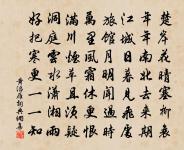 楚岸花晴塞柳衰
年年南北去來期
江城日暮見飛處
旅館月明聞過時
萬里風霜休更恨
滿川煙草且須疑
洞庭雲水瀟湘雨
好把寒更一一知
黃滔雁